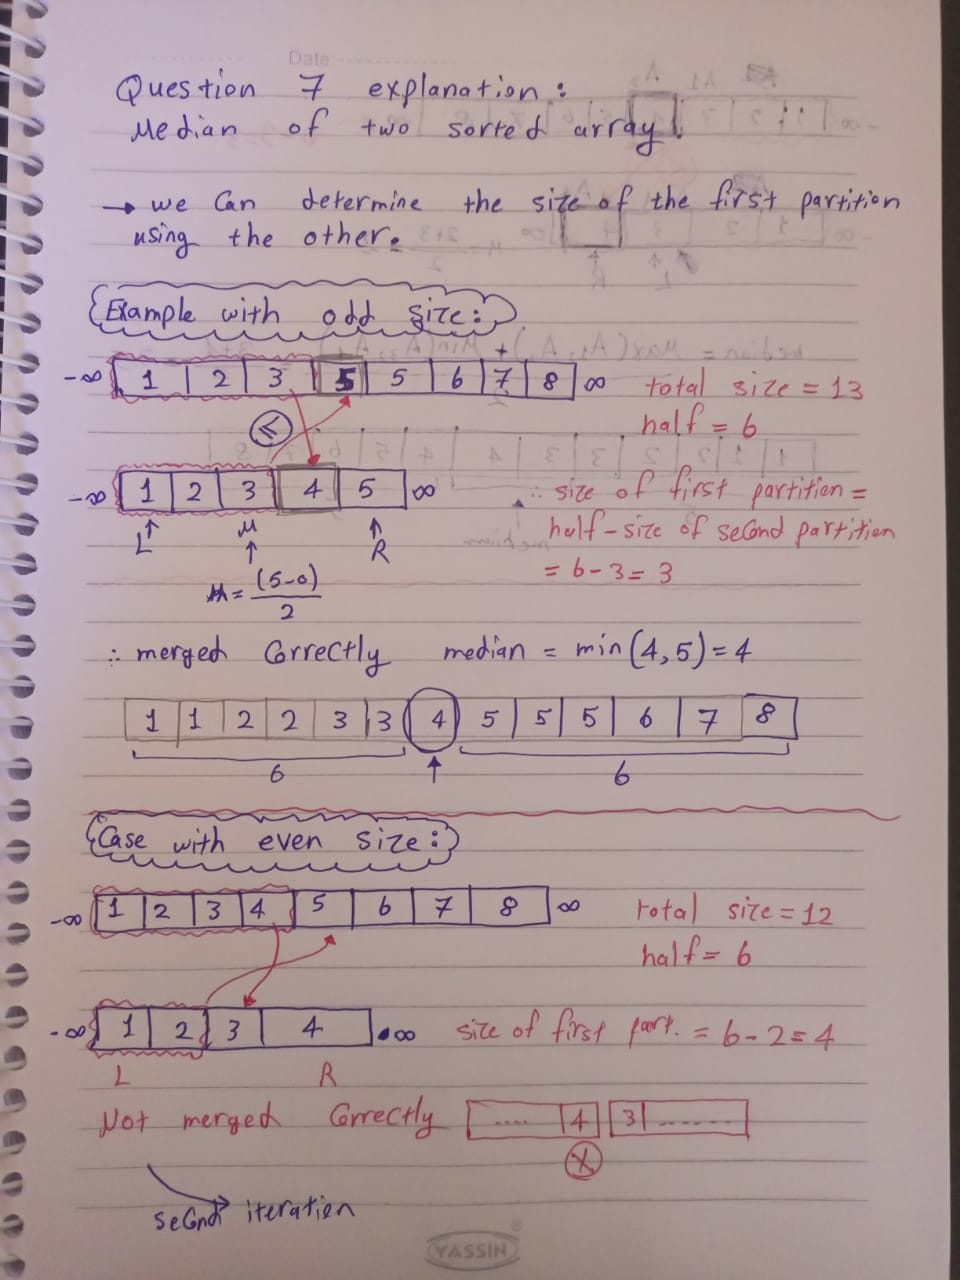 Date
Question 7 explanation:
Median of two sorted array.
→ we can determine the size of the first partition
using the other.
Example with odd size:
-∞ 1 2 3 5 5 6 7 8 ∞
total size = 13
half = 6
≤
-∞ 1 2 3 4 5 ∞
∴ size of first partition =
half - size of second partition
= 6 - 3 = 3
L M R
M = (5-0)/2
∴ merged correctly median = min(4,5) = 4
1 1 2 2 3 3 4 5 5 5 6 7 8
6 ↑ 6
Case with even size:
-∞ 1 2 3 4 5 6 7 8 ∞
total size = 12
half = 6
-∞ 1 2 3 4 ∞ size of first part. = 6 - 2 = 4
L R
Not merged correctly ..... 4 3 .......
X
second iteration
YASSIN